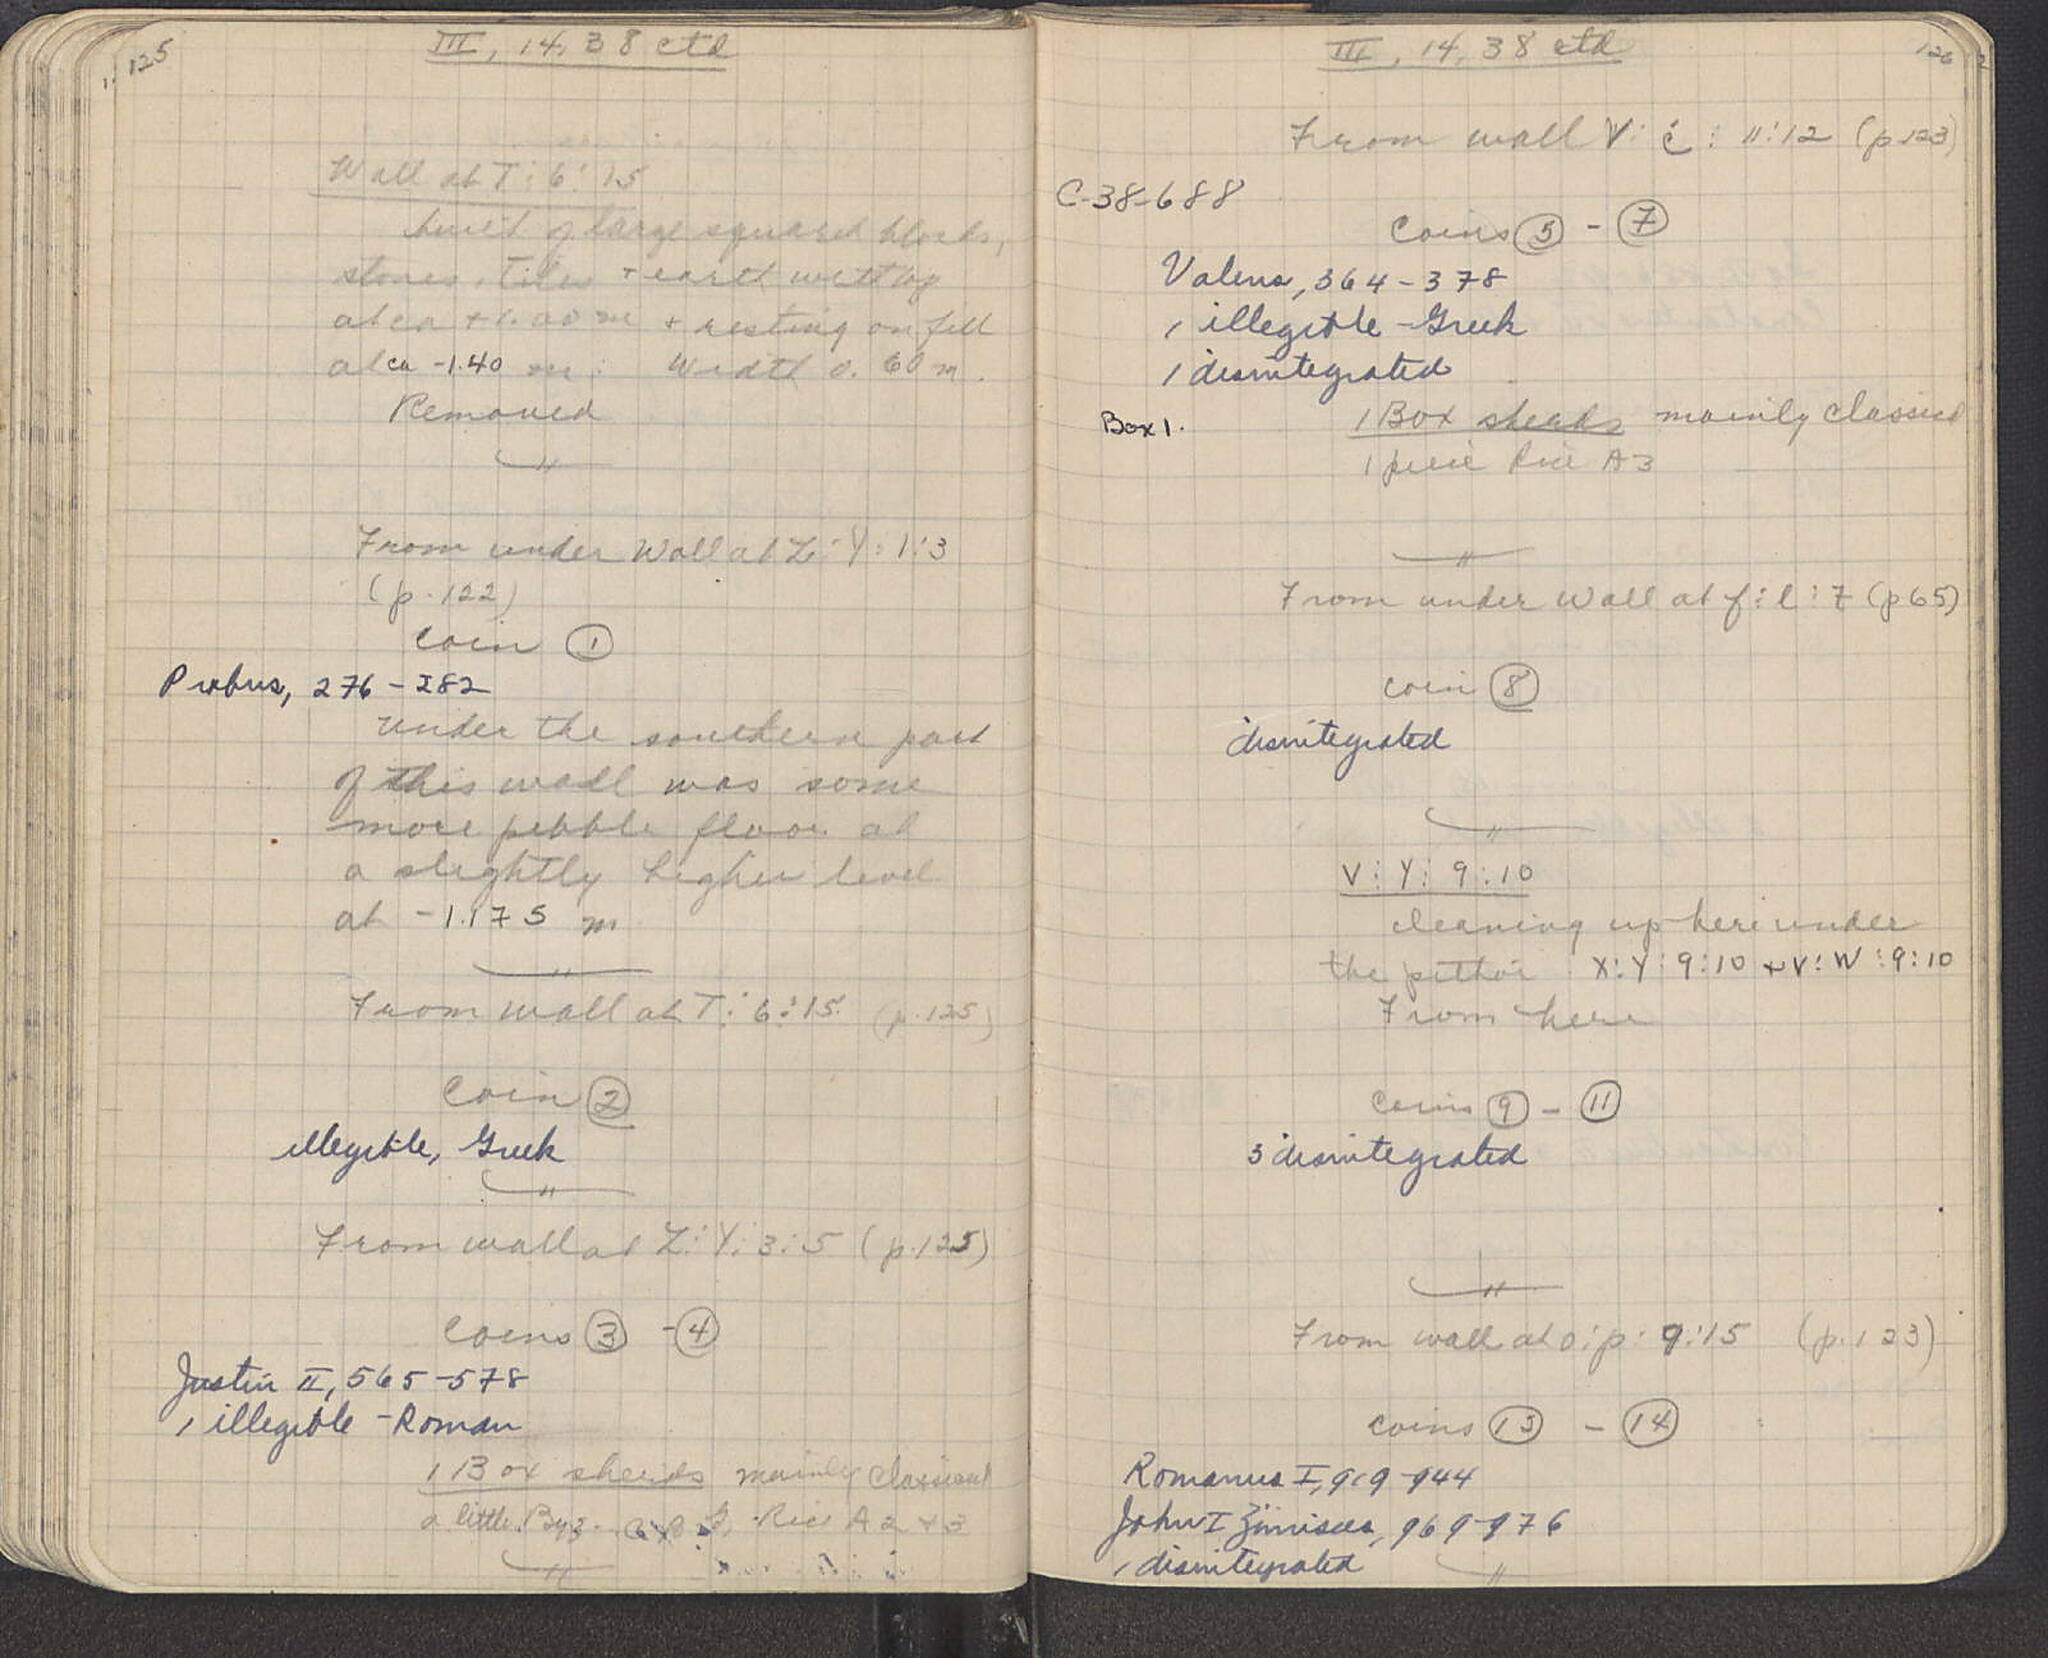 125
III, 14, 38 ctd
Wall at T: 6: 15
built of large squared blocks,
stones, tiles + earth with top
at ca +1.00 m + resting on fill
at ca -1.40 m: Width 0.60 m.
Removed
From under Wall at Z: Y: 1:3
(p. 122)
Coin 1
Probus, 276-282
Under the southern part
of this wall was some
more pebble floor at
a slightly higher level
at -1.175 m
From wall at T: 6: 15. (p. 125)
Coin 2
illegible, Greek
From wall at Z: Y: 3:5 (p. 125)
Coins 3 - 4
Justin II, 565-578
1 illegible - Roman
1 Box sherds mainly classical
a little Byz. Rice A2 + 3
III, 14, 38 ctd
126
From wall V: c: 11:12 (p 123)
C-38-688
Coins 5 - 7
Valens, 364-378
1 illegible - Greek
1 disintegrated
Box 1.
1 Box sherds mainly classical
1 piece Rice A3
From under Wall at f: l: 7 (p 65)
coin 8
disintegrated
V: Y: 9:10
cleaning up here under
the pithoi X: Y: 9:10 + V: W: 9:10
From here
Coins 9 - 11
3 disintegrated
From wall at o: p: 9:15 (p. 123)
coins 13 - 14
Romanus I, 919-944
John I Zimisces, 969-976
1 disintegrated